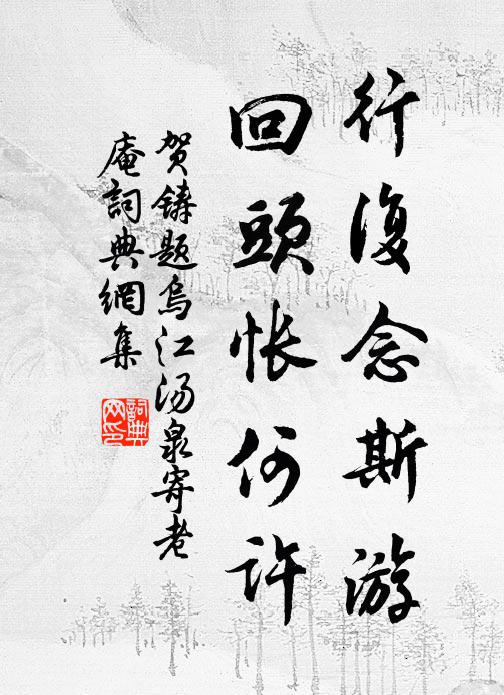 行復念斯游
回頭悵何許
贺鑄题烏江汤泉寄老
庵詞典網集
詞典
网印